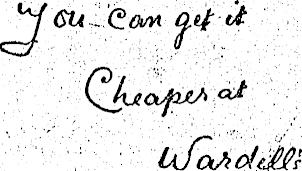 "You can get it
Cheaper at
Wardell's